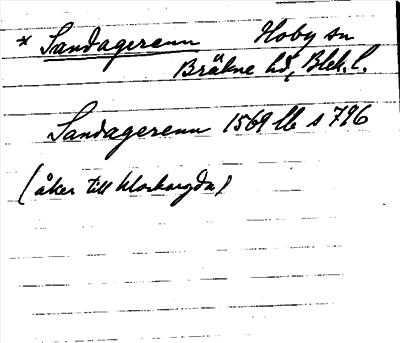 * Sandagerenn Hoby sn
Bräkne hd, Blek. l.
Sandagerenn 1569 llb s 796
(åker till klockargda)